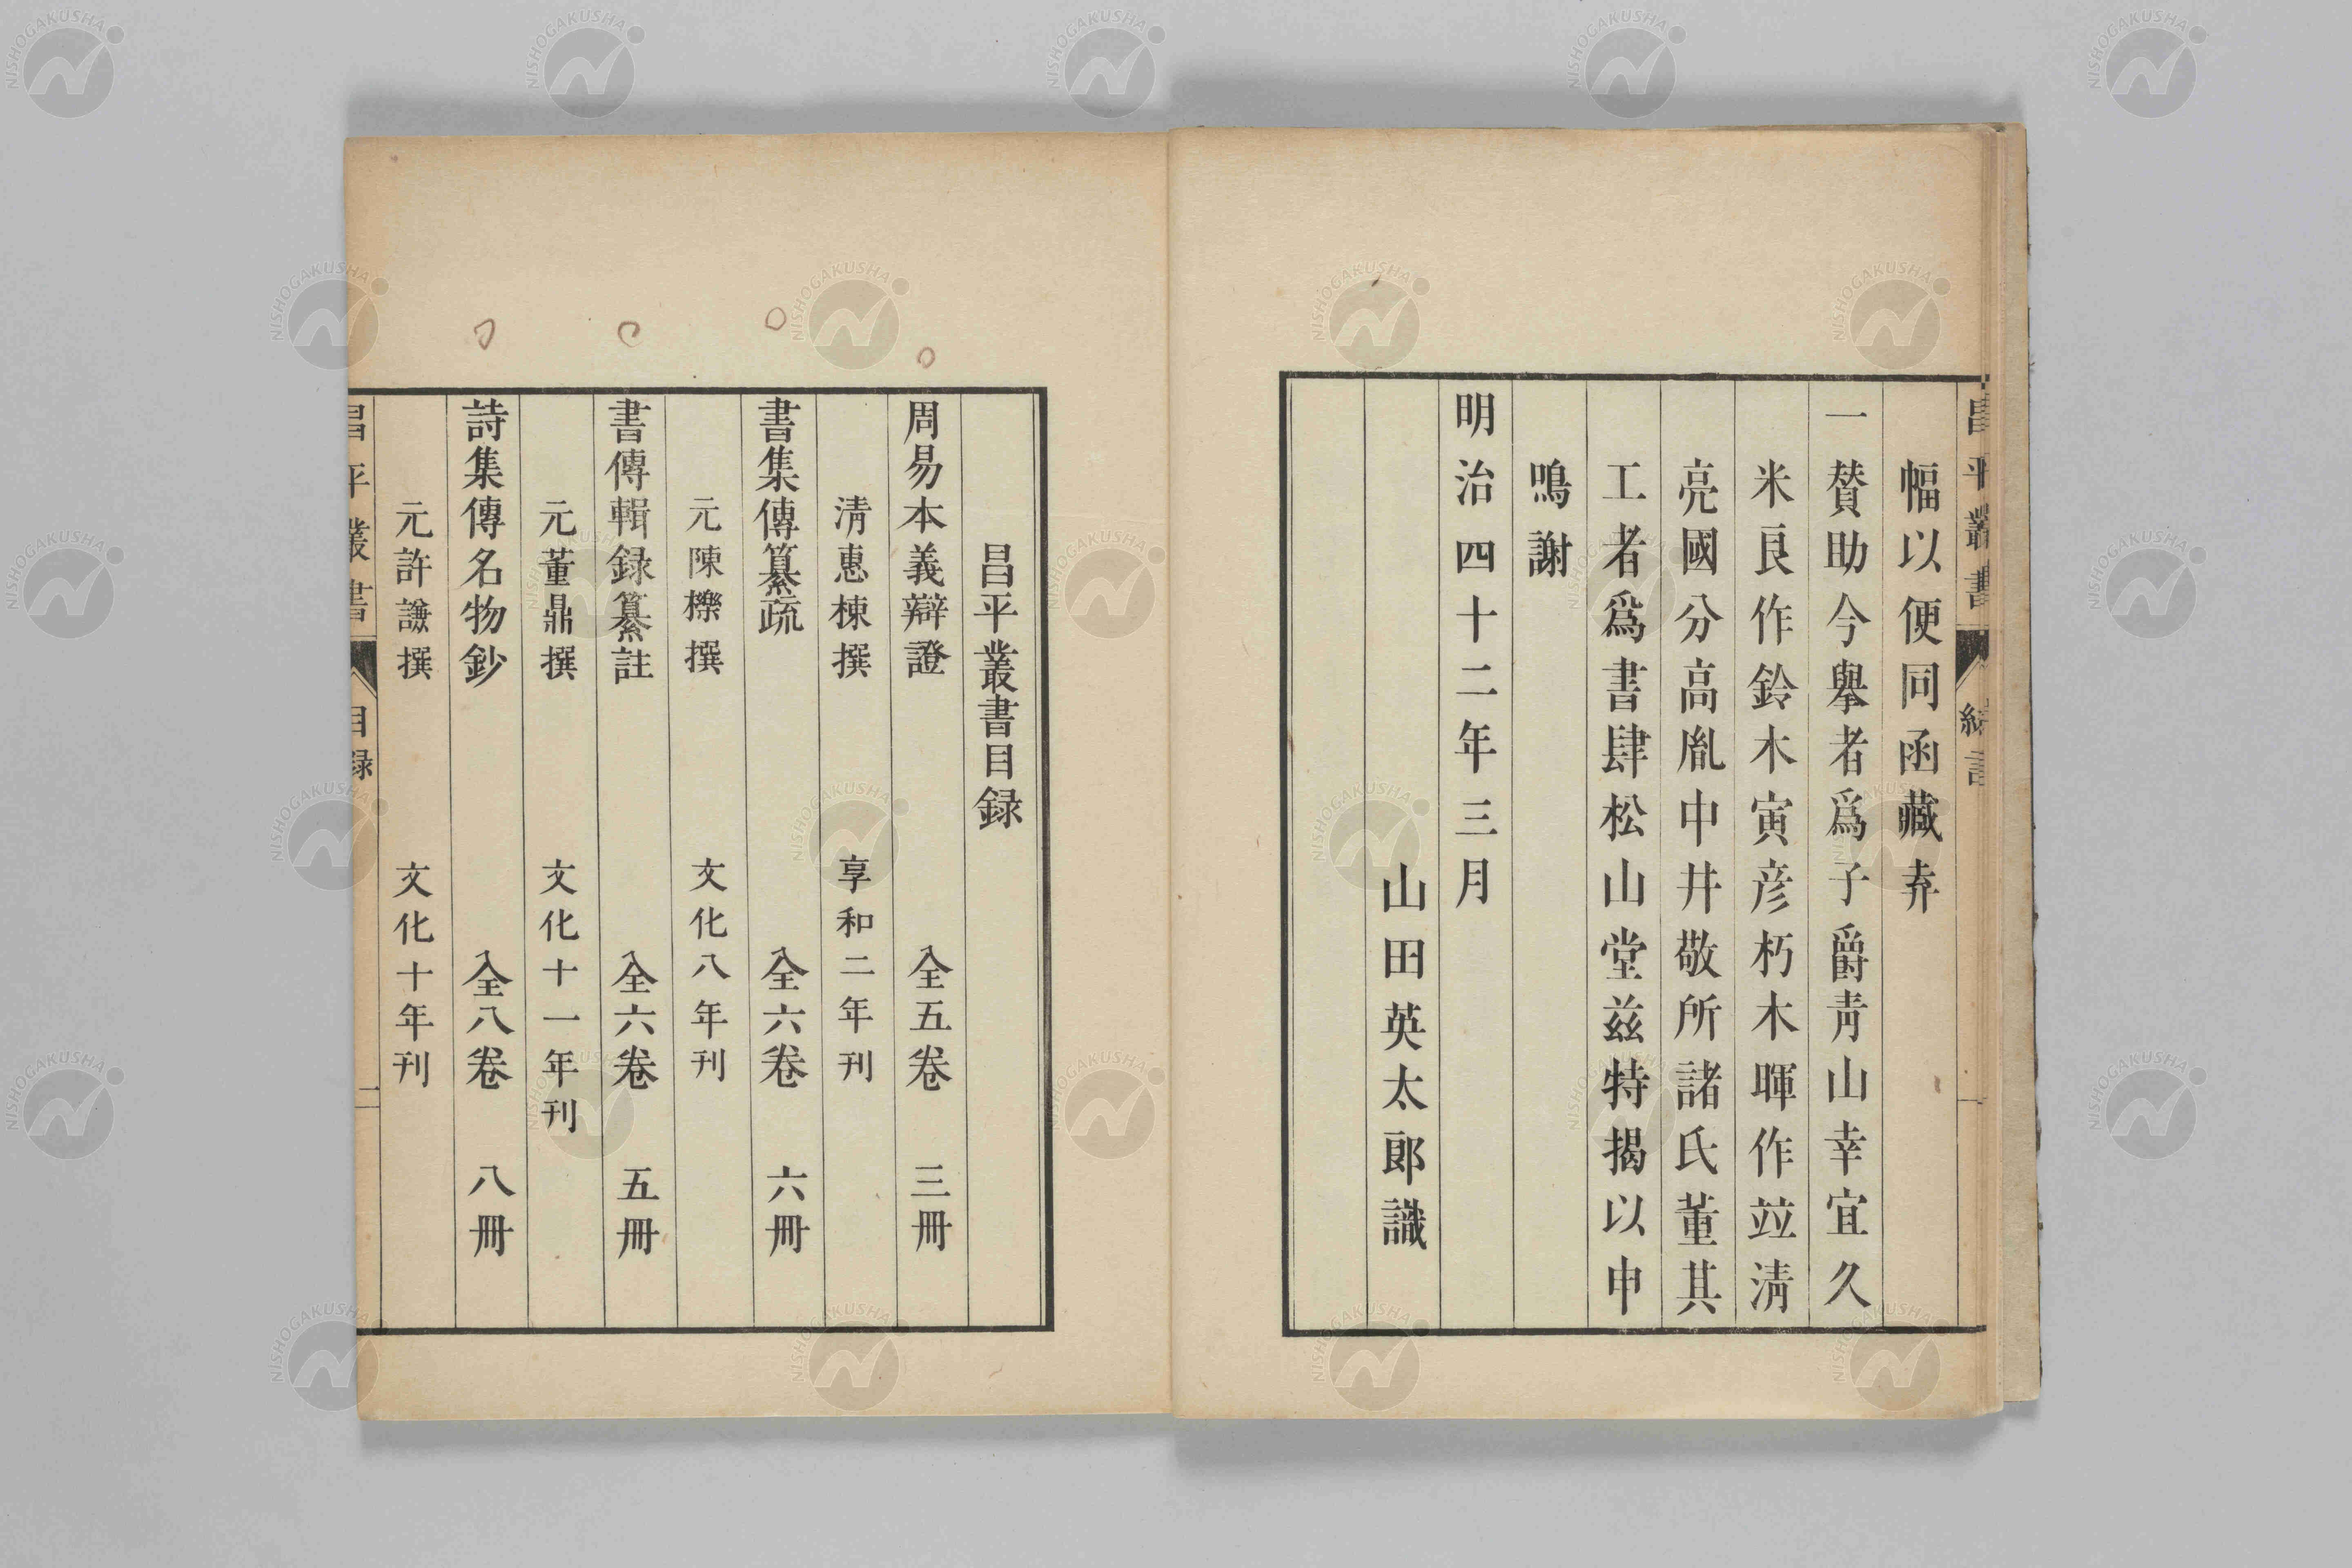 幅以便同函藏弆
一賛助今擧者爲子爵靑山幸宜久
米良作鈴木寅彦朽木暉作竝淸
亮國分高胤中井敬所諸氏董其
工者爲書肆松山堂茲特揭以申
鳴謝
明治四十二年三月
山田英太郞識
昌平叢書目録
周易本義辯證 全五卷 三冊
淸惠棟撰 享和二年刊
書集傳纂疏 全六卷 六冊
元陳櫟撰 文化八年刊
書傳輯録纂註 全六卷 五冊
元董鼎撰 文化十一年刊
詩集傳名物鈔 全八卷 八冊
元許謙撰 文化十年刊
昌平叢書 目録 一
NISHOGAKUSHA